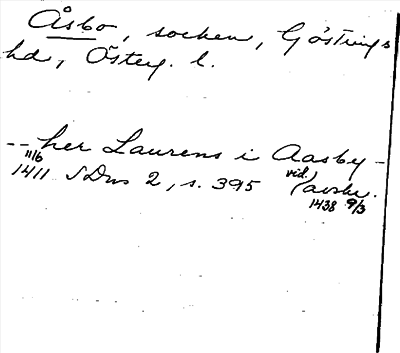 Åsbo, socken, Göstrings
hd, Österg. l.
-- her Laurens i Aasby -
11/6
1411 SDns 2, s. 395 (avskr. vid.
1438 9/3